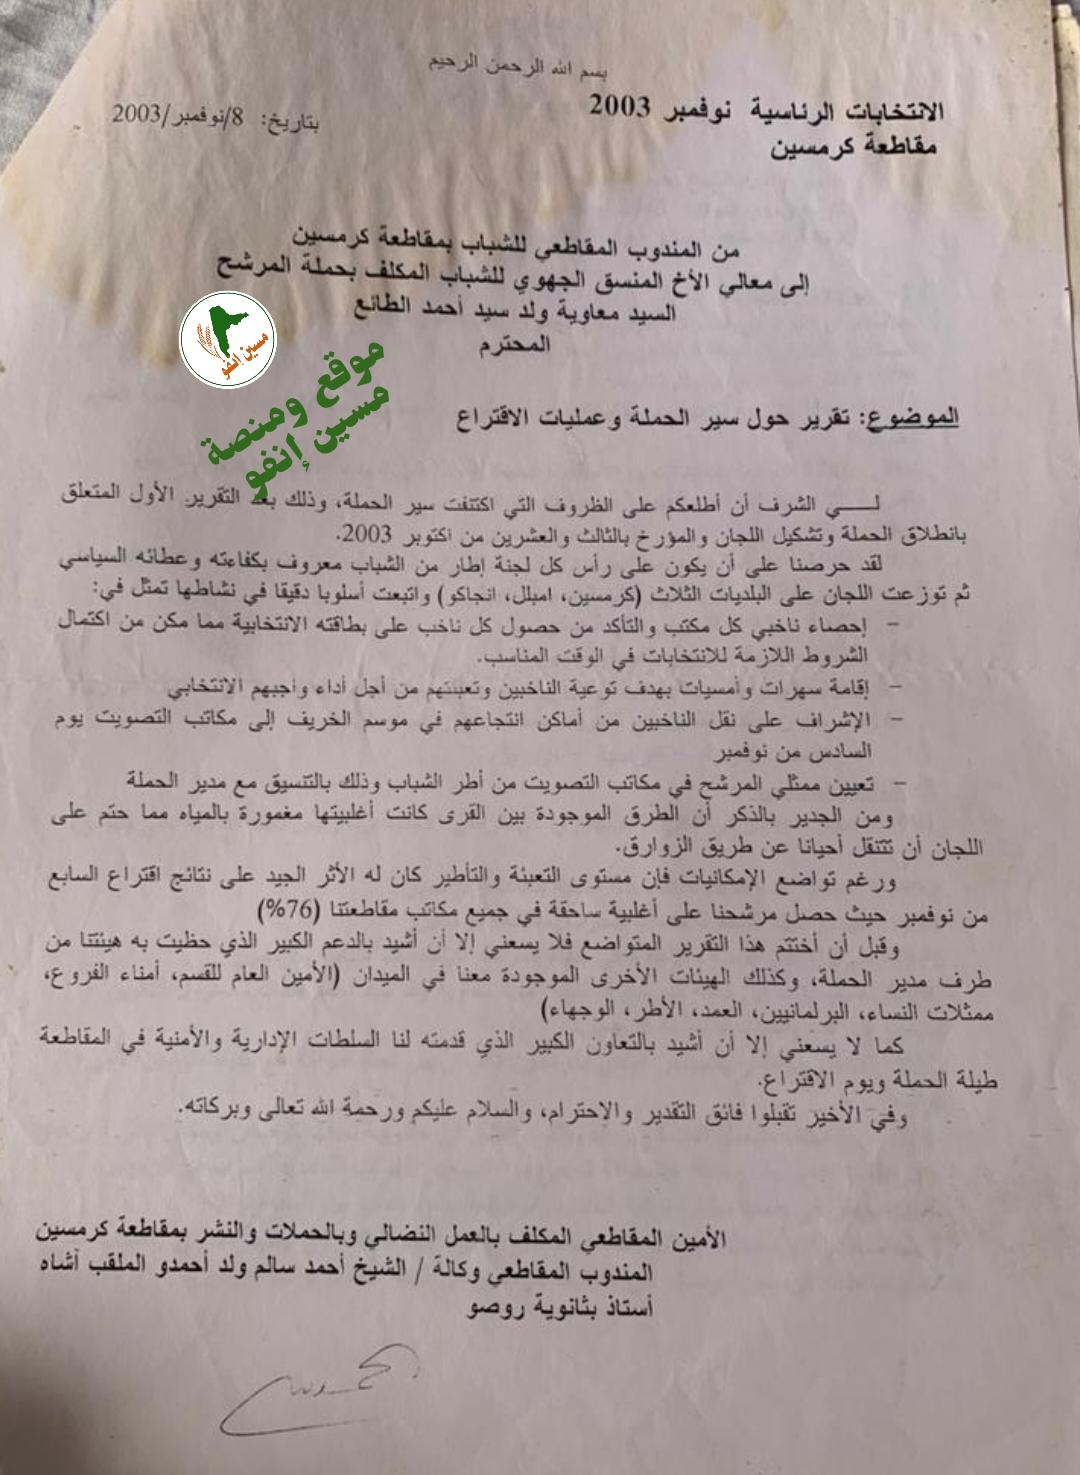 بسم الله الرحمن الرحيم
الانتخابات الرئاسية نوفمبر 2003
بتاريخ: 8/نوفمبر/2003
مقاطعة كرمسين
من المندوب المقاطعي للشباب بمقاطعة كرمسين
إلى معالي الأخ المنسق الجهوي للشباب المكلف بحملة المرشح
السيد معاوية ولد سيد أحمد الطائع
المحترم
مسين إنفو
موقع ومنصة
مسين إنفو
الموضوع: تقرير حول سير الحملة وعمليات الاقتراع
لــــي الشرف أن أطلعكم على الظروف التي اكتنفت سير الحملة، وذلك بعد التقرير الأول المتعلق
بانطلاق الحملة وتشكيل اللجان والمؤرخ بالثالث والعشرين من اكتوبر 2003.
لقد حرصنا على أن يكون على رأس كل لجنة إطار من الشباب معروف بكفاءته وعطائه السياسي
ثم توزعت اللجان على البلديات الثلاث (كرمسين، امبلل، انجاكو) واتبعت أسلوبا دقيقا في نشاطها تمثل في:
- إحصاء ناخبي كل مكتب والتأكد من حصول كل ناخب على بطاقته الانتخابية مما مكن من اكتمال
الشروط اللازمة للانتخابات في الوقت المناسب.
- إقامة سهرات وأمسيات بهدف توعية الناخبين وتعبئتهم من أجل أداء واجبهم الانتخابي
- الإشراف على نقل الناخبين من أماكن انتجاعهم في موسم الخريف إلى مكاتب التصويت يوم
السادس من نوفمبر
- تعيين ممثلي المرشح في مكاتب التصويت من أطر الشباب وذلك بالتنسيق مع مدير الحملة
ومن الجدير بالذكر أن الطرق الموجودة بين القرى كانت أغلبيتها مغمورة بالمياه مما حتم على
اللجان أن تتنقل أحيانا عن طريق الزوارق.
ورغم تواضع الإمكانيات فإن مستوى التعبئة والتأطير كان له الأثر الجيد على نتائج اقتراع السابع
من نوفمبر حيث حصل مرشحنا على أغلبية ساحقة في جميع مكاتب مقاطعتنا (76%)
وقبل أن أختتم هذا التقرير المتواضع فلا يسعني إلا أن أشيد بالدعم الكبير الذي حظيت به هيئتنا من
طرف مدير الحملة، وكذلك الهيئات الأخرى الموجودة معنا في الميدان (الأمين العام للقسم، أمناء الفروع،
ممثلات النساء، البرلمانيين، العمد، الأطر، الوجهاء)
كما لا يسعني إلا أن أشيد بالتعاون الكبير الذي قدمته لنا السلطات الإدارية والأمنية في المقاطعة
طيلة الحملة ويوم الاقتراع.
وفي الأخير تقبلوا فائق التقدير والاحترام، والسلام عليكم ورحمة الله تعالى وبركاته.
الأمين المقاطعي المكلف بالعمل النضالي وبالحملات والنشر بمقاطعة كرمسين
المندوب المقاطعي وكالة / الشيخ أحمد سالم ولد أحمدو الملقب آشاه
أستاذ بثانوية روصو